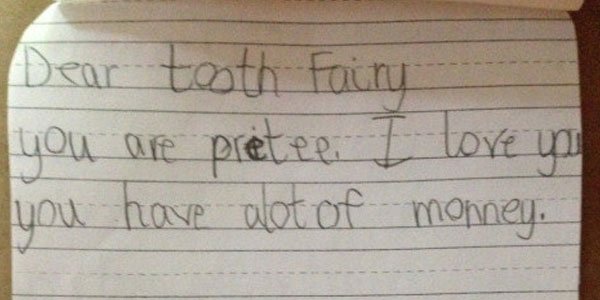 Dear tooth Fairy
you are pretee. I love you
you have alot of monney.